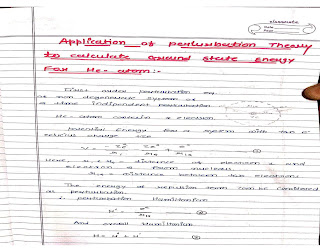 classmate
Date
Page
Application of perturbation Theory
to calculate Ground state Energy
For He-atom :-
First order perturbation eq.
as non degenerate system of
a time independent perturbation
He-atom contain 2 electron.
Potential Energy for a system with two e⁻
nuclear charge ze
V = - ze²/r₁ - ze²/r₂ + e²/r₁₂
Here, r₁ & r₂ = distance of electron 1 and
electron 2 from nucleus.
r₁₂ = distance between two electrons
The energy of repulsion term can be considered
as perturbation.
∴ perturbation Hamiltonian
H' = e²/r₁₂
And overall Hamiltonian
H = H° + H'